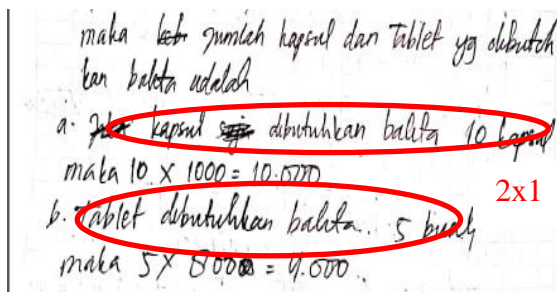 maka jumlah kapsul dan Tablet yg dibutuh
kan balita adalah
a. kapsul dibutuhkan balita 10 kapsul
maka 10 x 1000 = 10.000
2x1
b. Tablet dibutuhkan balita. 5 buah
maka 5 x 8000 = 4.000